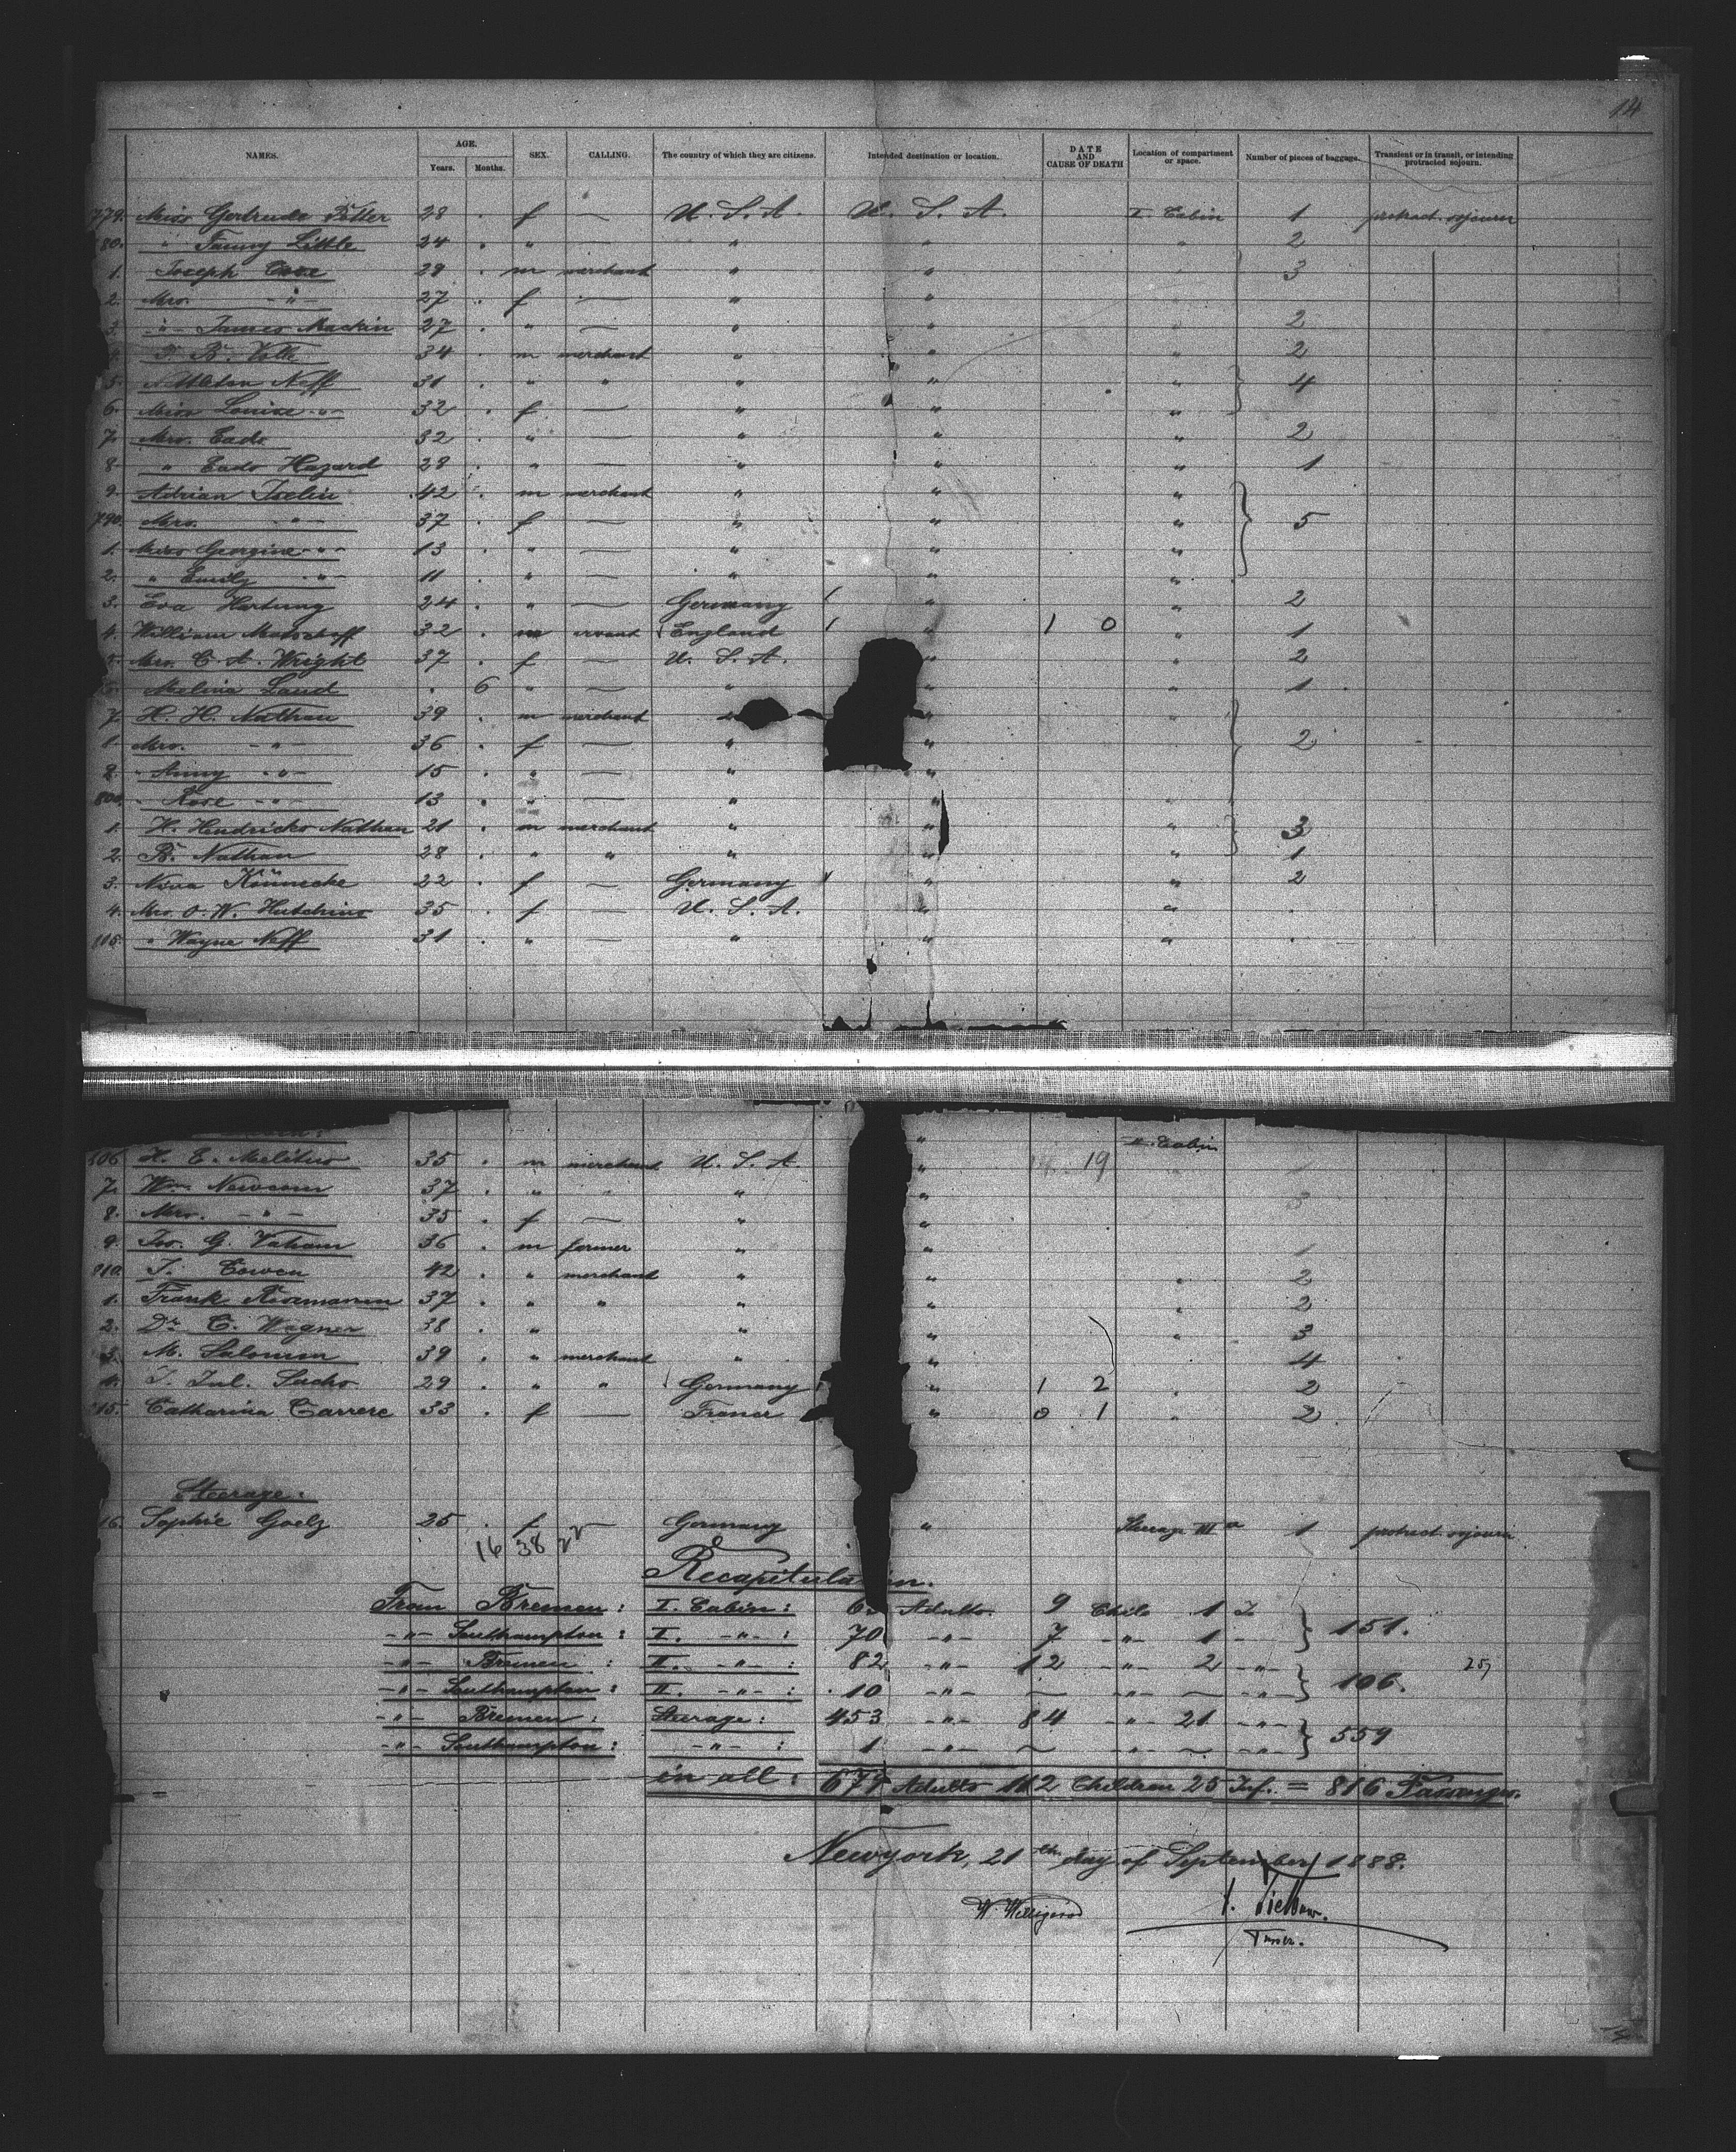 14
NAMES. AGE. Years. Months. SEX. CALLING. The country of which they are citizens. Intended destination or location. DATE AND CAUSE OF DEATH Location of compartment or space. Number of pieces of baggage. Transient or in transit, or intending protracted sojourn.
779. Miss Gertrude 28 . f — U. S. A. U. S. A. I. Cabin 1 protract. sojourn
80. " Fanny Little 24 . " — " " " 2
1. Joseph 29 . m merchant " " 3
2. Mrs. -"- 27 . f — " "
3. -"- James Mackin 27 . " — " " " 2
34 . m merchant " " " 2
5. Nettleton Neff 31 . " " " " " 4
6. Miss Louise -"- 32 . f — " " "
7. Mrs. Eads 32 . " — " " " 2
8. " Eads Hazard 28 . " — " " " 1
9. Adrian Iselin 42 . m merchant " " "
790. Mrs. -"- 37 . f — " " " 5
1. Miss Georgine -"- 13 . " — " " "
2. " Emily -"- 11 . " — " " "
3. Eva Hartung 24 . " — Germany " " 2
4. William 32 . m servant England " 1 0 " 1
5. Mrs. C. A. Wright 37 . f — U. S. A. " " 2
6. Melina Laud . 6 " — " " " 1
7. H. H. Nathan 39 . m merchant " " "
Mrs. -"- 36 . f — " " 2
" Anny -"- 15 . " — " "
800. " Rose -"- 13 . " — " " "
1. H. Hendricks Nathan 21 . m merchant " " " 3
2. B. Nathan 28 . " " " " " 1
3. Nina Könnecke 22 . f — Germany " " 2
4. Mrs. O. W. Hutchins 35 . f — U. S. A. " " .
" Wayne Neff 31 . " — " " " .
" II. Cabin
806 H. E. 35 . m merchant U. S. A. " 19
7. Wm. Newcom 37 . " " " " 3
8. Mrs. -"- 35 . f — " "
9. Jos. G. 36 . m farmer " " 1
810. J. Cowen 42 . " merchant " " " 2
1. Frank 37 . " " " " " 2
2. Dr. C. Wagner 38 . " " " " 3
3. M. Salomon 39 . " merchant " " 4
4. J. Jul. Sachs. 29 . " " Germany " 1 2 . 2
815. Catharina Carrere 33 . f — France " 0 1 " 2
Steerage:
16. Sophie Goelz 25 . f — Germany " Steerage III a 1 protract sojourn
16 38 22
Recapitula in.
From Bremen: I. Cabin: 6 Adults. 9 Child 1 I.
-"- Southampton: I. -"- : 70 -"- 7 -"- 1 - } 151.
-"- Bremen: II. -"- : 82 -"- 12 -"- 2 -"-
-"- Southampton: II. -"- : 10 -"- — -"- — -"- } 106.
-"- Bremen: Steerage: 453 -"- 84 -"- 21 -"-
-"- Southampton: -"- : 1 -"- — -"- — -"- } 559
in all: 679 Adults 112 Children 25 Inf. = 816 Passengers.
Newyork, 21th day of September 1888.
W. Willigerod